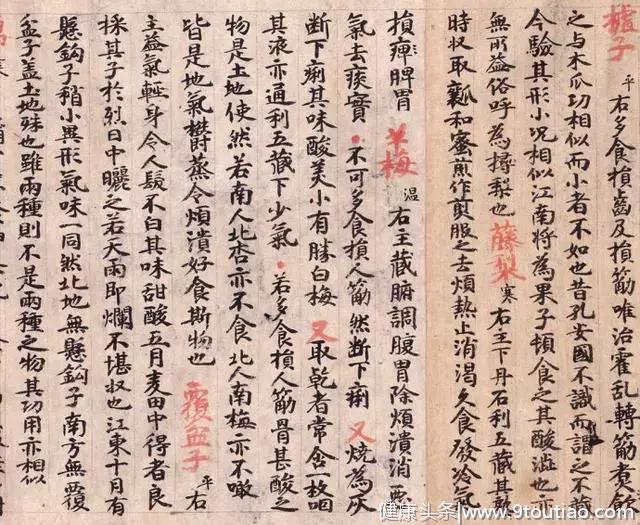 樝子 平 右多食損齒及損筋唯治霍亂轉筋煮飲
之与木瓜功相似而小者不如也昔孔安國不識而謂之不藏
今驗其形小況相似江南將為果子頓食之其酸澁也亦
無所益俗呼為㯌梨也 藤梨 寒 右主下丹石利五藏其熟
時収取瓤和蜜煎作煎服之去煩熱止消渴久食發冷氣
損痺脾胃 羊梅 温 右主藏腑調腹胃除煩潰消惡
氣去痰實・不可多食損人筋然断下痢 又燒為灰
断下痢其味酸美小有勝白梅 又取乾者常含一枚咽
其液亦通利五藏下少氣・若多食損人筋骨甚酸之
物是土地使然若南人北杏亦不食北人南梅亦不噉
皆是地氣欝蒸令煩潰好食斯物也 覆盆子 平 右
主益氣輕身令人髮不白其味甜酸五月麦田中得者良
採其子於烈日中曬之若天雨即爛不堪収也江東十月有
懸鈎子稍小異形氣味一同然北地無懸鈎子南方無覆
盆子盖土地殊也雖兩種則不是兩種之物其功用亦相似
健康头条/www.9toutiao.com